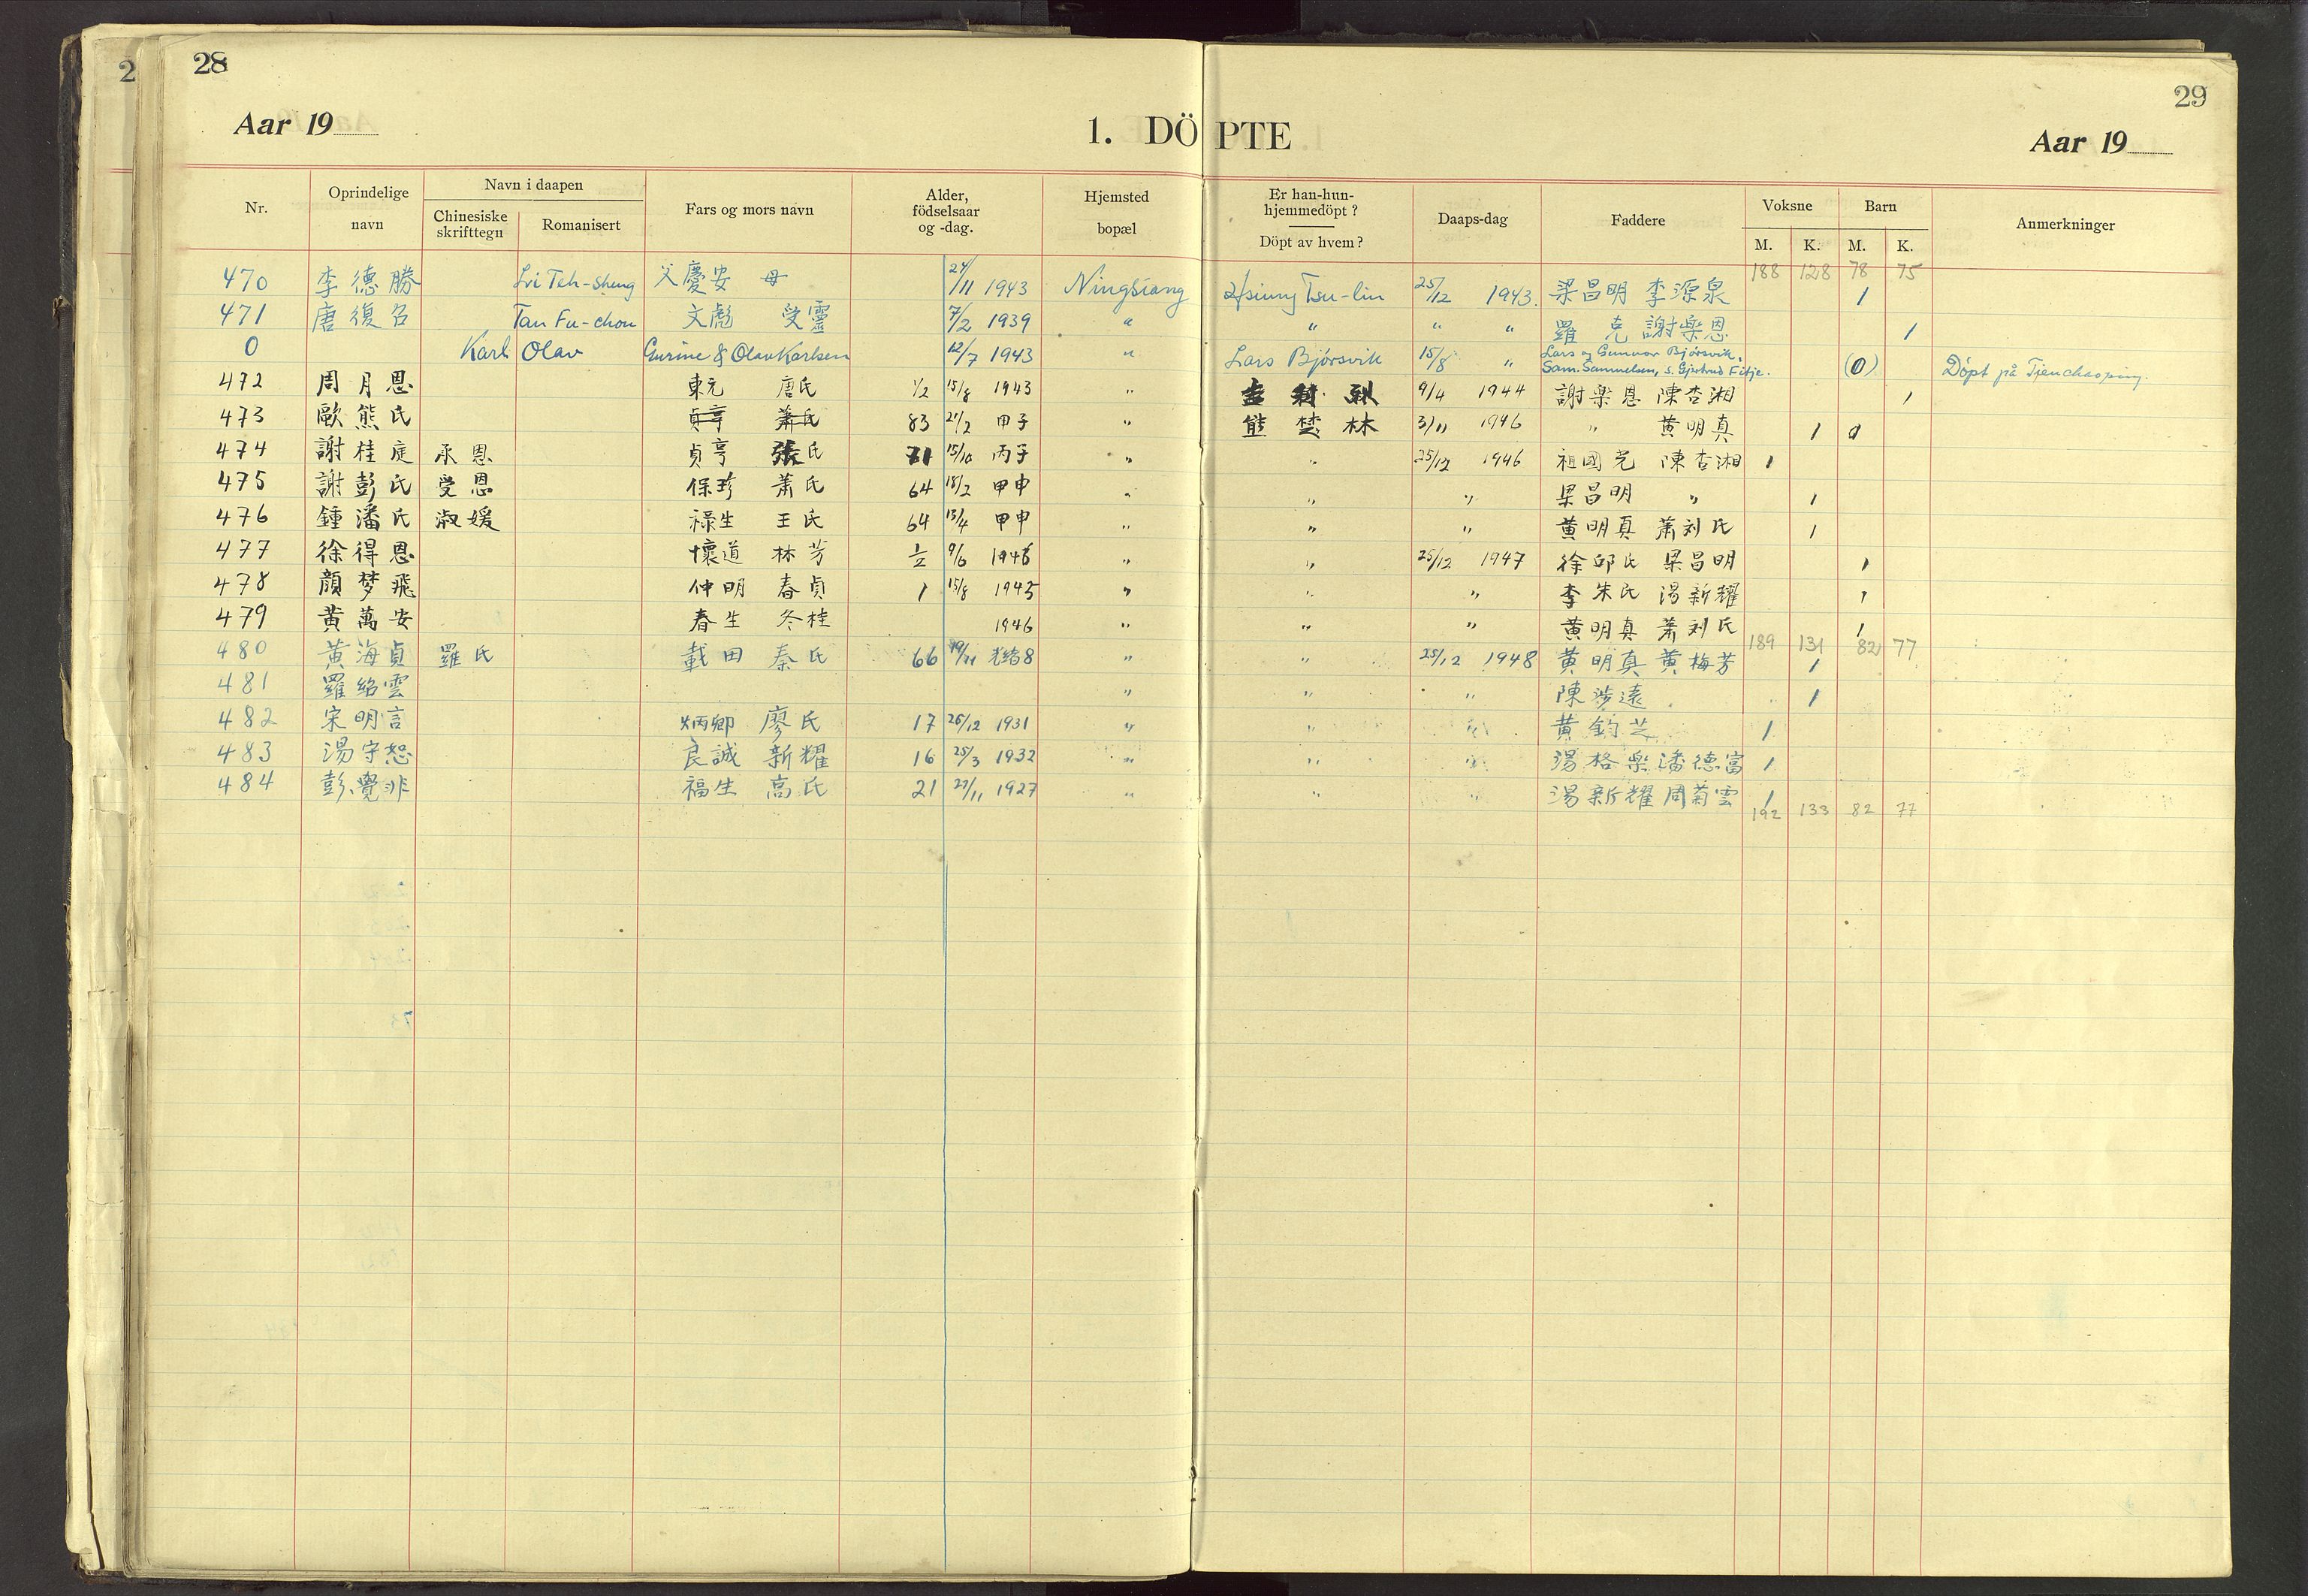 2
28
29
Aar 19
1. DÖPTE
Aar 19
Nr.
Oprindelige navn
Navn i daapen
Chinesiske skrifttegn
Romanisert
Fars og mors navn
Alder, födselsaar og -dag.
Hjemsted bopæl
Er han-hun-hjemmedöpt?
Döpt av hvem?
Daaps-dag
Faddere
Voksne
M. K.
Barn
M. K.
Anmerkninger
188 128 78 75
470 李德勝 Li Teh-sheng 父慶安 母 24/11 1943 Ningsiang Hsiung Tsu-lin 25/12 1943. 梁昌明 李源泉 1
471 唐復召 Tan Fu-chou 文彪 受靈 7/2 1939 " " " " 羅 克 謝樂恩 1
0 Karl Olav Gurine & Olav Karlsen 12/7 1943 " Lars Bjørsvik 15/8 " Lars og Gunvor Bjørsvik, Sam. Samuelsen, S. Gjertrud Fitje. (0) Döpt på Tienchasping.
472 周月恩 東元 唐氏 1/2 15/8 1943 " 9/4 1944 謝樂恩 陳杏湘 1
473 歐熊氏 貞亨 蕭氏 83 21/2 甲子 " 熊楚林 3/11 1946 " 黄明真 1
474 謝桂庭 承恩 貞亨 張氏 71 15/10 丙子 " " 25/12 1946 祖國光 陳杏湘 1
475 謝彭氏 受恩 保珍 蕭氏 64 18/2 甲申 " " " 梁昌明 " 1
476 鍾潘氏 淑媛 祿生 王氏 64 13/4 甲申 " " " 黄明真 蕭刘氏 1
477 徐得恩 懷道 林芳 1/2 9/6 1946 " " 25/12 1947 徐邱氏 梁昌明 1
478 顏梦飛 仲明 春貞 1 15/8 1945 " " " 李朱氏 湯新耀 1
479 黃萬安 春生 冬桂 1946 " " " 黄明真 蕭刘氏 1
189 131 82 77
480 黄海貞 羅氏 載田 秦氏 66 19/11 光緒8 " " 25/12 1948 黄明真 黄梅芳 1
481 羅紹雲 " " " 陳涉遠 1
482 宋明言 炳卿 廖氏 17 26/12 1931 " " " 黄鈞芝 1
483 湯守恕 良誠 新耀 16 25/3 1932 " " " 湯格樂 潘德富 1
484 彭覺非 福生 高氏 21 27/11 1927 " " " 湯新耀 周菊雲 1
192 133 82 77